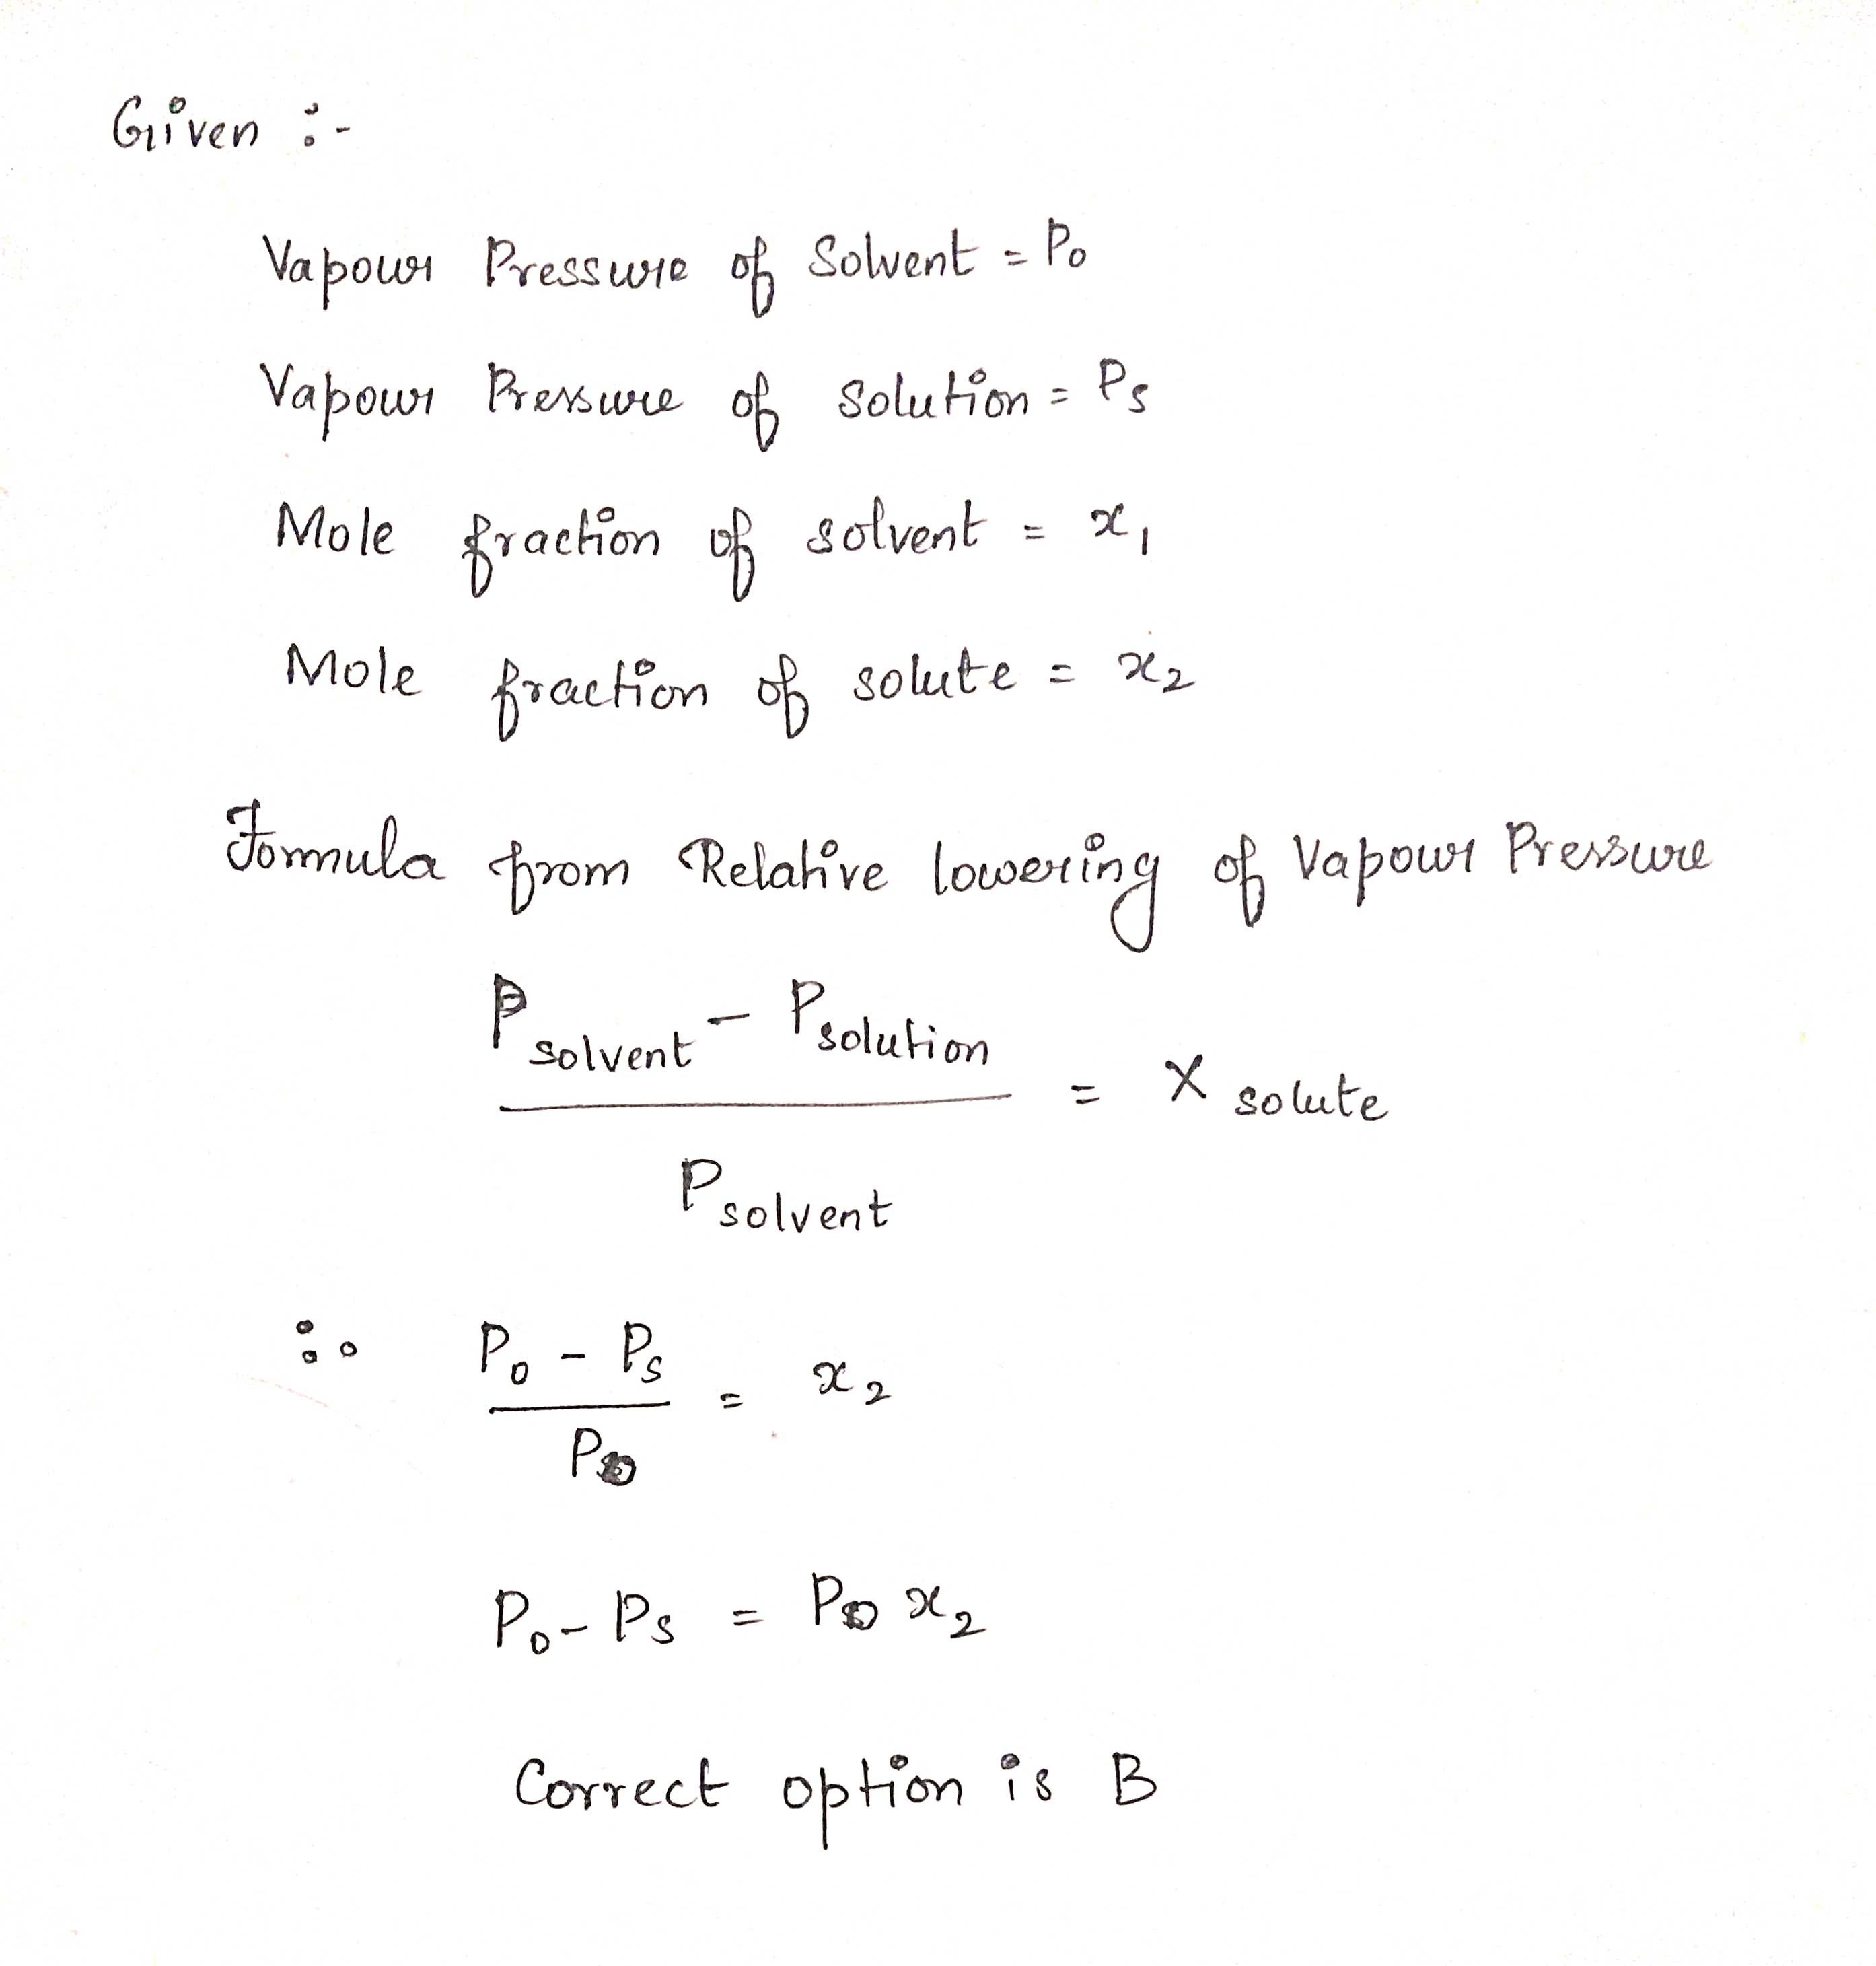 Given :-
Vapour Pressure of Solvent = P₀
Vapour Pressure of solution = Pₛ
Mole fraction of solvent = x₁
Mole fraction of solute = x₂
Formula from Relative lowering of Vapour Pressure
P solvent - P solution
= X solute
P solvent
∴ P₀ - Pₛ
= x₂
P₀
P₀ - Pₛ = P₀ x₂
Correct option is B